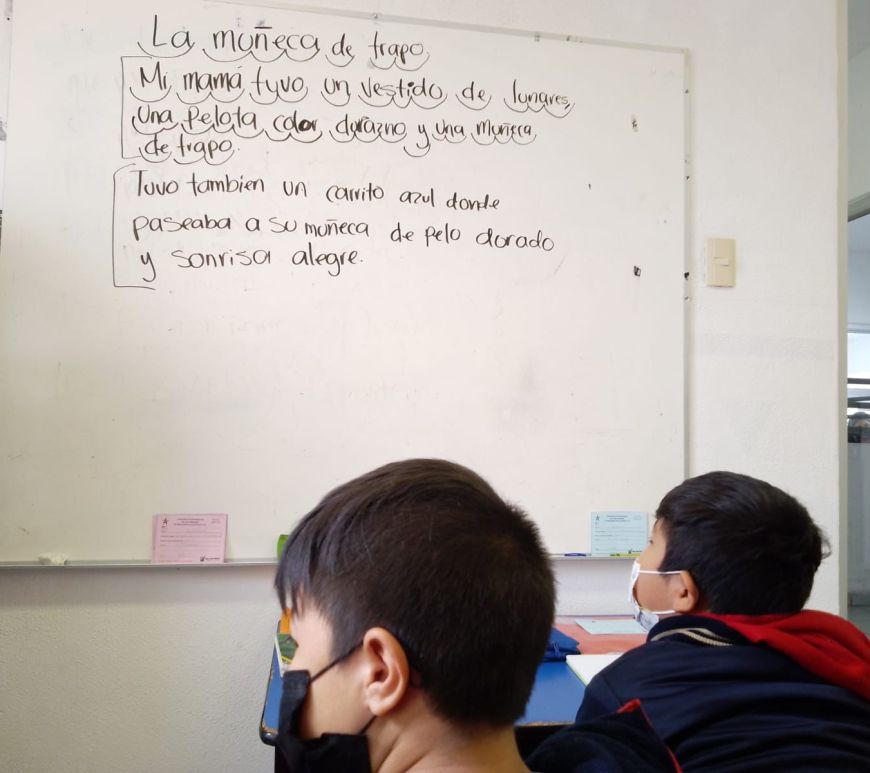 La muñeca de trapo.
Mi mamá tuvo un vestido de lunares,
una pelota color durazno y una muñeca
de trapo.
Tuvo tambien un carrito azul donde
paseaba a su muñeca de pelo dorado
y sonrisa alegre.